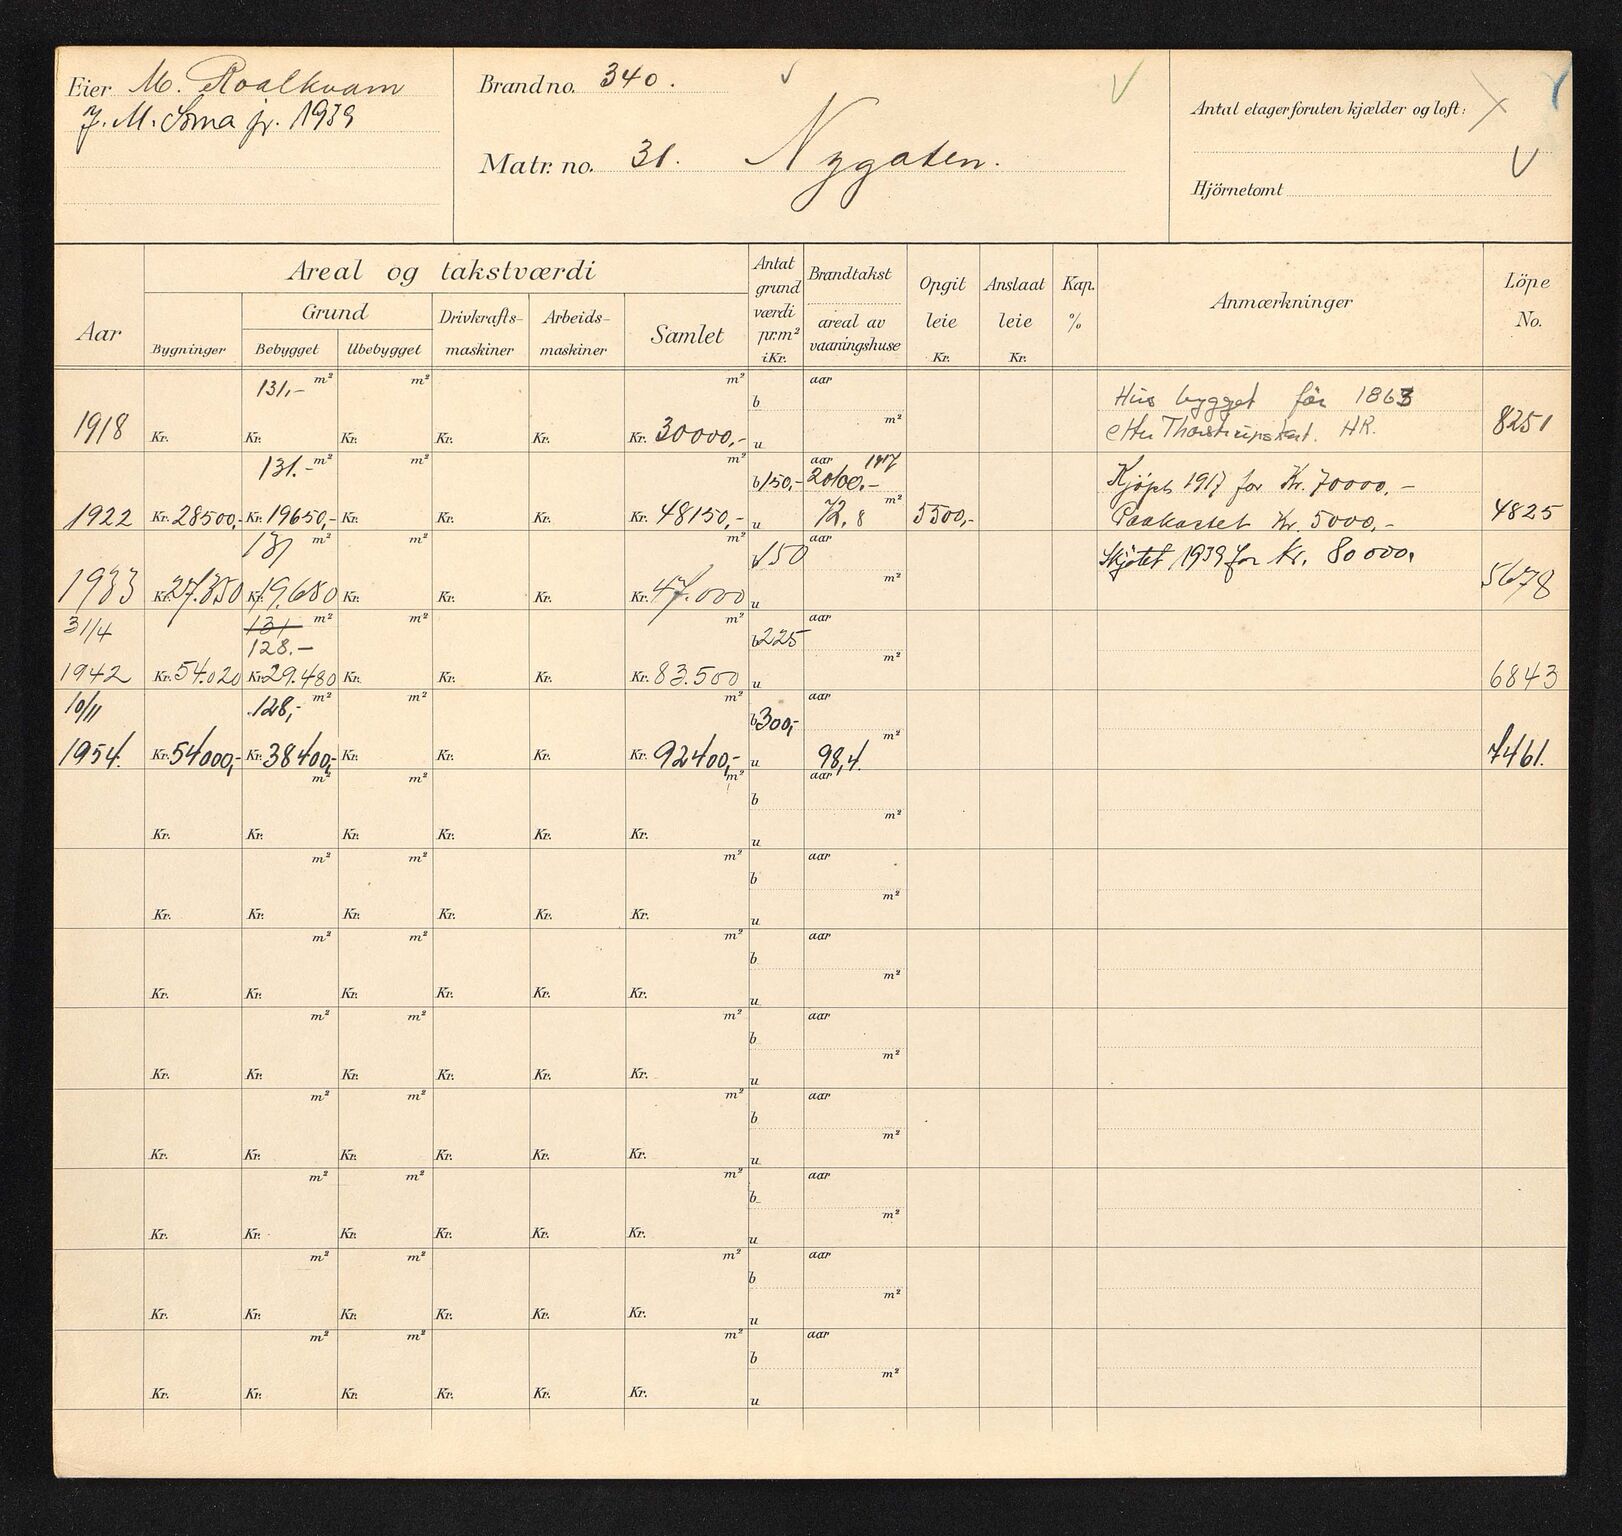 Eier M. Roalkvam
J. M. Soma jr. 1939
Brand no. 340.
Matr. no. 31. Nygaten.
Antal etager foruten kjælder og loft:
Hjörnetomt
Aar
Areal og takstværdi
Grund
Bygninger Bebygget Ubebygget
Drivkrafts-
maskiner
Arbeids-
maskiner
Samlet
Antat
grund
værdi
pr. m²
i Kr.
Brandtakst
areal av
vaaningshuse
Opgit
leie
Kr.
Anslaat
leie
Kr.
Kap.
%
Anmærkninger
Löpe
No.
131,- m² m² m² aar
b
m²
1918 Kr. Kr. Kr. Kr. Kr. Kr. 30000,- u 8251
Hus bygget før 1863
etter Thorstrupskat. HR.
131.- m² m² m² aar 1917
b 150,-
m²
1922 Kr. 28500,- Kr. 19650,- Kr. Kr. Kr. Kr. 48150,- u 72,8 5500,- 4825
Kjøpt 1917 for Kr. 70000,-
Paakostet Kr. 5000,-
131 m² m² m² aar
b 150
m²
1933 Kr. 27.350 Kr. 19.650 Kr. Kr. Kr. Kr. 47.000 u 5678
Skjøtet 1939 for Kr. 80000,
31/4 131 m² m² m² aar
128.- b 225
m²
1942 Kr. 54.020 Kr. 29.480 Kr. Kr. Kr. Kr. 83.500 u 6843
10/11 128,- m² m² m² aar
b 300,-
m²
1954. Kr. 54000,- Kr. 38400,- Kr. Kr. Kr. Kr. 92400,- u 98,4. 7461.
m² m² m² aar
b
m²
Kr. Kr. Kr. Kr. Kr. Kr. u
m² m² m² aar
b
m²
Kr. Kr. Kr. Kr. Kr. Kr. u
m² m² m² aar
b
m²
Kr. Kr. Kr. Kr. Kr. Kr. u
m² m² m² aar
b
m²
Kr. Kr. Kr. Kr. Kr. Kr. u
m² m² m² aar
b
m²
Kr. Kr. Kr. Kr. Kr. Kr. u
m² m² m² aar
b
m²
Kr. Kr. Kr. Kr. Kr. Kr. u
m² m² m² aar
b
m²
Kr. Kr. Kr. Kr. Kr. Kr. u
m² m² m² aar
b
m²
Kr. Kr. Kr. Kr. Kr. Kr. u